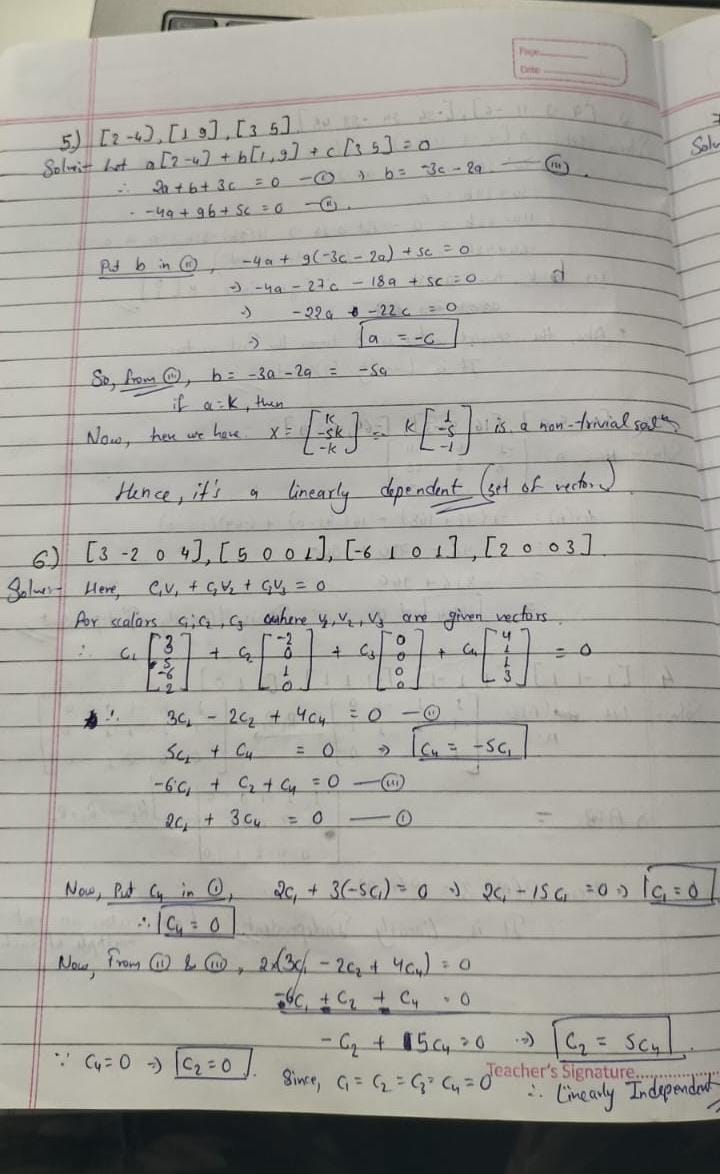 Page
Date
5) [2 -4], [1 9], [3 5]
Solun:- Let a[2 -4] + b[1, 9] + c[3 5] = 0
∴ 2a + b + 3c = 0 —(i) ⇒ b = -3c - 2a —(iii)
-4a + 9b + 5c = 0 —(ii).
Put b in (ii), -4a + 9(-3c - 2a) + 5c = 0
⇒ -4a - 27c - 18a + 5c = 0
⇒ -22a -22c = 0
⇒ a = -c
So, from (iii), b = -3a - 2a = -5a
if a = k, then
Now, here we have x = [k -5k -k] = k [1 -5 -1] is a non-trivial soln
Hence, it's a linearly dependent (set of vectors)
6) [3 -2 0 4], [5 0 0 1], [-6 1 0 1], [2 0 0 3].
Solun:- Here, C₁V₁ + C₂V₂ + C₃V₃ = 0
for scalars c₁, c₂, c₃ where v₁, v₂, v₃ are given vectors.
∴ C₁ [3 5 -6 2] + C₂ [-2 0 1 0] + C₃ [0 0 0 0] + C₄ [4 1 1 3] = 0
∴ 3C₁ - 2C₂ + 4C₄ = 0 —(ii)
5C₁ + C₄ = 0 ⇒ C₄ = -5C₁
-6C₁ + C₂ + C₄ = 0 —(iii)
2C₁ + 3C₄ = 0 —(i)
Now, Put C₄ in (i), 2C₁ + 3(-5C₁) = 0 ⇒ 2C₁ - 15C₁ = 0 ⇒ C₁ = 0
∴ C₄ = 0
Now, From (ii) & (iii), 2×(3C₁ - 2C₂ + 4C₄) = 0
-6C₁ + C₂ + C₄ = 0
- C₂ + 5C₄ = 0 ⇒ C₂ = 5C₄
∵ C₄ = 0 ⇒ C₂ = 0.
Teacher's Signature
Since, C₁ = C₂ = C₃ = C₄ = 0 ∴ Linearly Independent
Solu